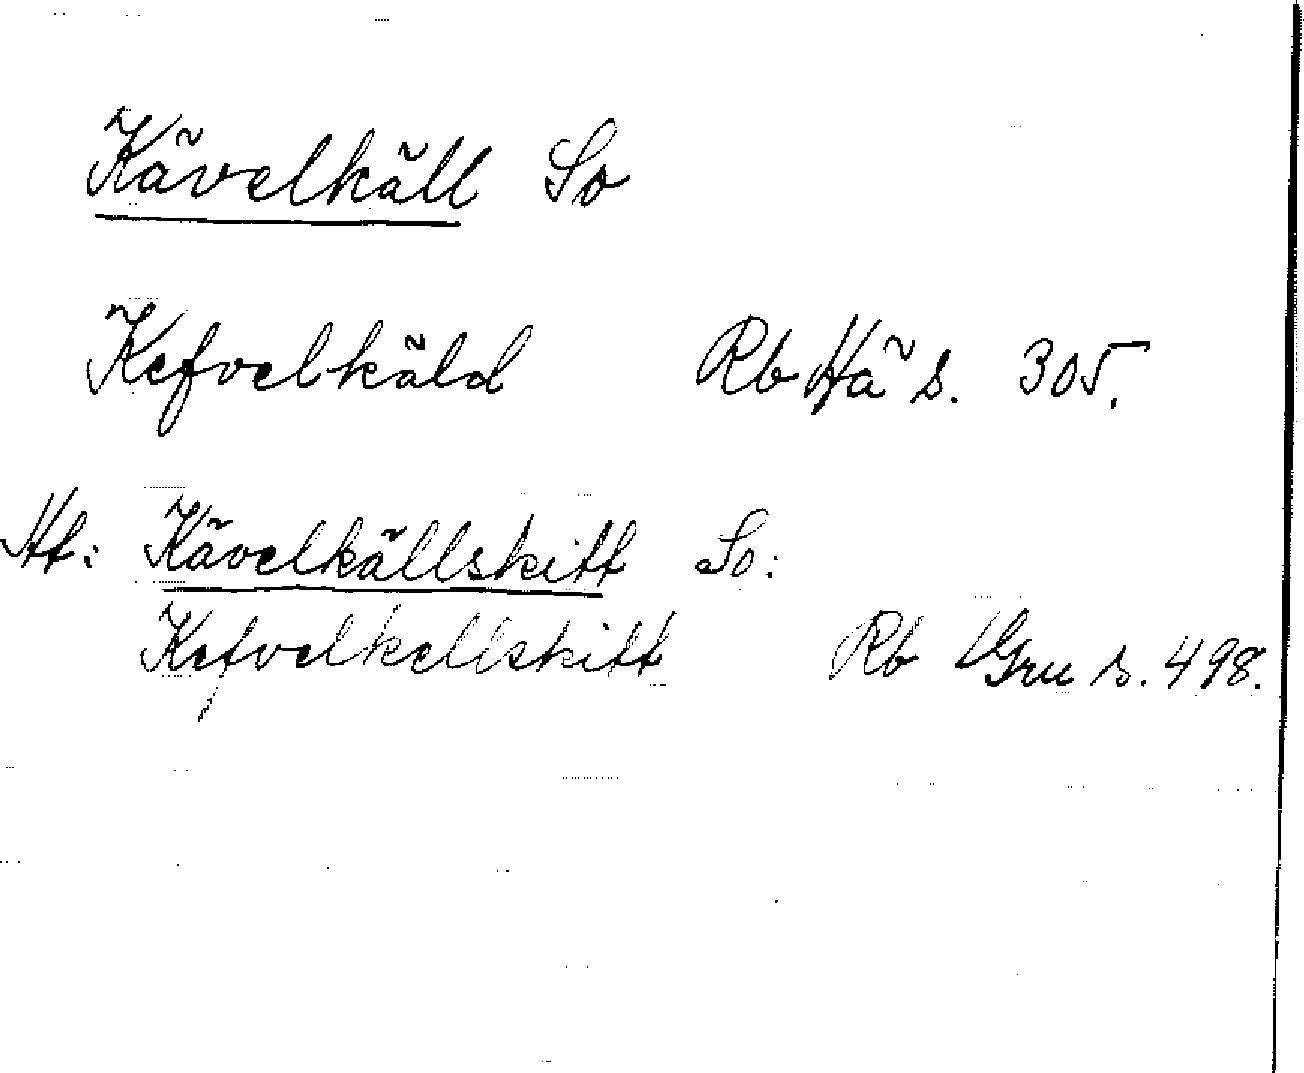 Kävelkäll So
Kefvelkäld Rb Hä s. 305.
Ht: Kävelkällskitt So:
Kefvelkellskitt Rb Gru s. 498.